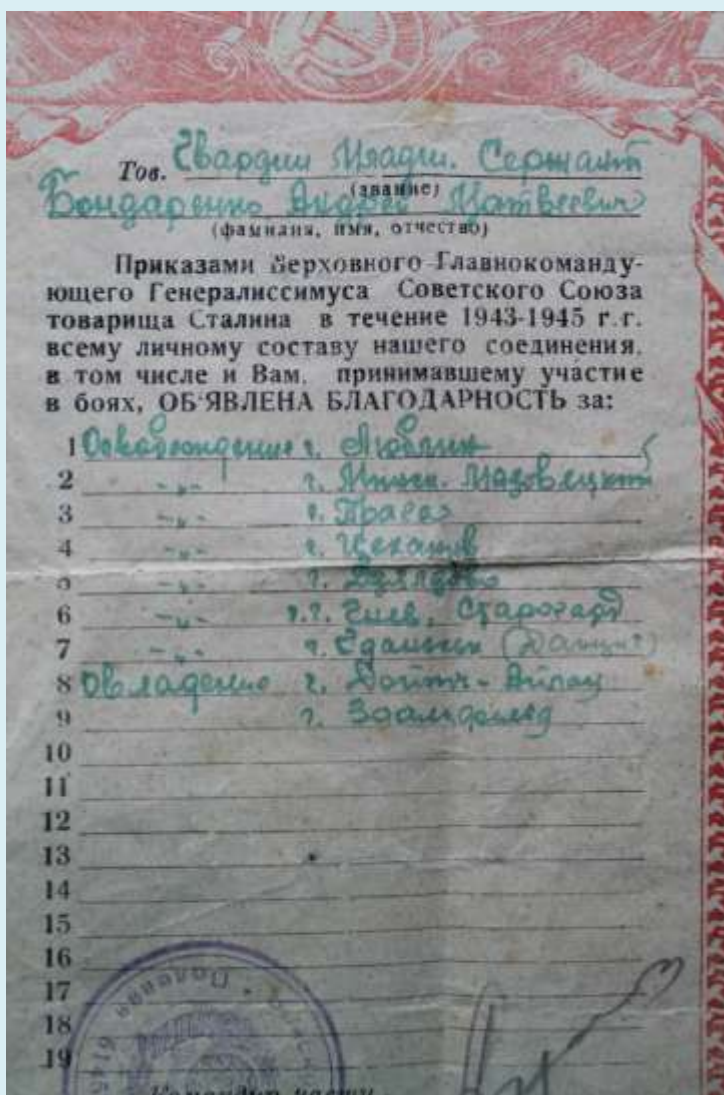 Тов. Гвардии Младш. Сержант
(звание)
Бондаренко Андрей Матвеевич
(фамилия, имя, отчество)
Приказами Верховного Главнокоманду-
ющего Генералиссимуса Советского Союза
товарища Сталина в течение 1943-1945 г.г.
всему личному составу нашего соединения,
в том числе и Вам, принимавшему участие
в боях, ОБ'ЯВЛЕНА БЛАГОДАРНОСТЬ за:
1 Освобождение г. Люблин
2 -„- г. Минск-Мазовецкий
3 -„- г. Прага
4 -„- г. Цеханув
5 -„- г.
6 -„- г.г. Гнев, Старогард
7 -„- г. Гданьск (Данциг)
8 Овладение г. Дойтч-Айлау
9 г. Заальфельд
10
11
12
13
14
15
16
17
18
19
Полевая
Командир части